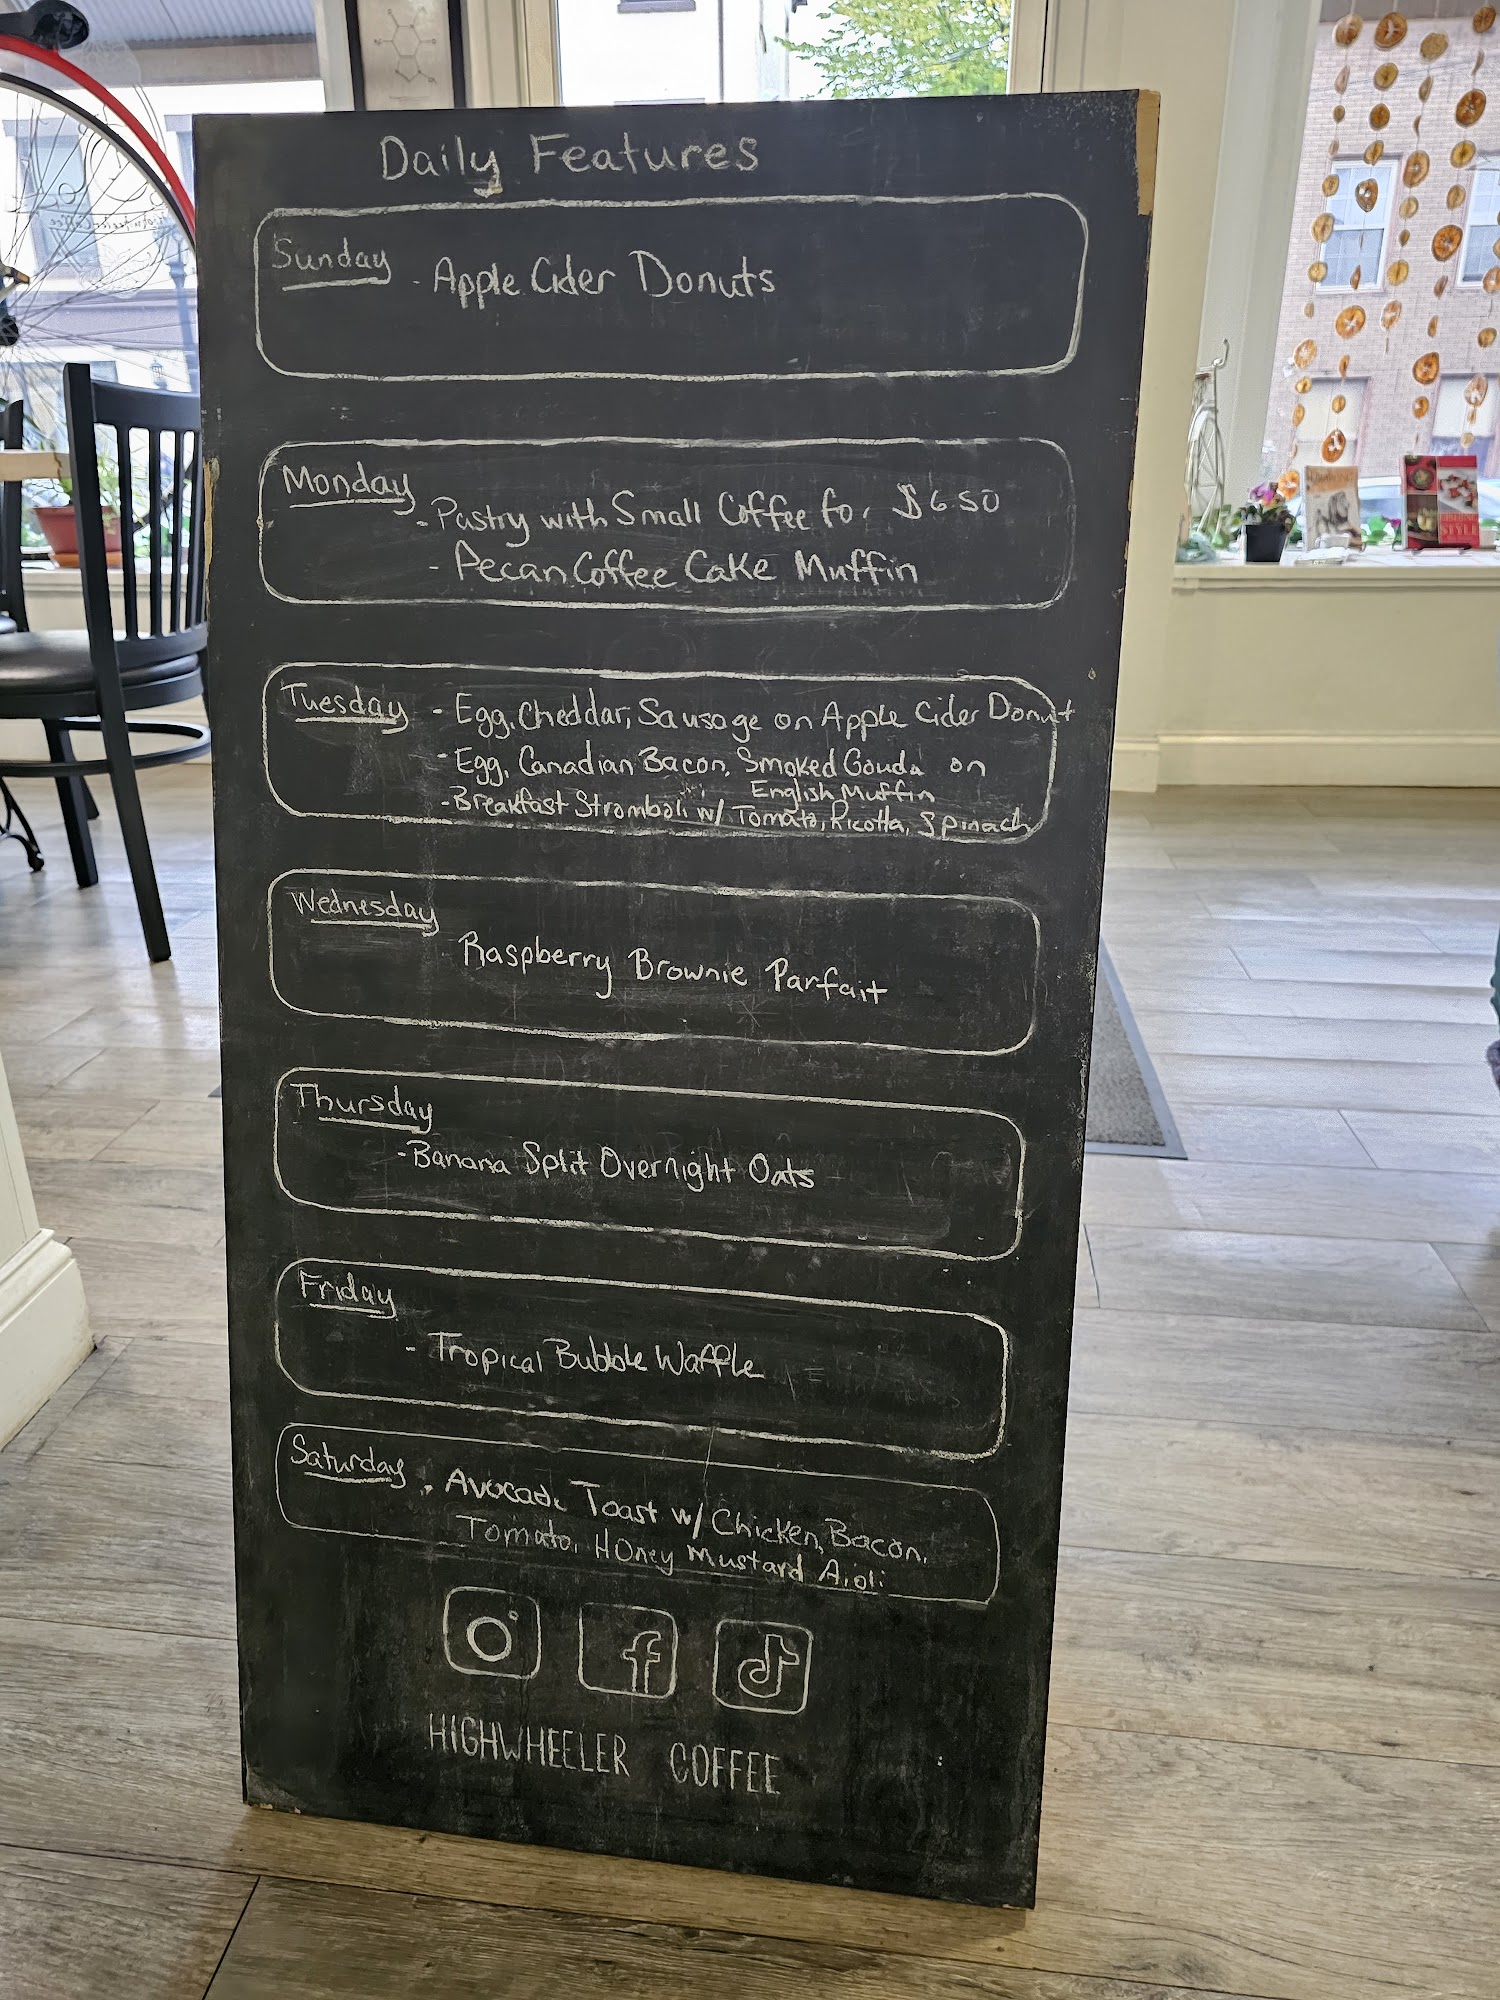 Daily Features
Sunday
- Apple Cider Donuts
Monday
- Pastry with Small Coffee for $6.50
- Pecan Coffee Cake Muffin
Tuesday - Egg, Cheddar, Sausage on Apple Cider Donut
- Egg, Canadian Bacon, Smoked Gouda on
English Muffin
- Breakfast Stromboli w/ Tomato, Ricotta, Spinach
Wednesday
Raspberry Brownie Parfait
Thursday
- Banana Split Overnight Oats
Friday
- Tropical Bubble Waffle
Saturday - Avocado Toast w/ Chicken, Bacon,
Tomato, Honey Mustard Aioli
HIGHWHEELER COFFEE